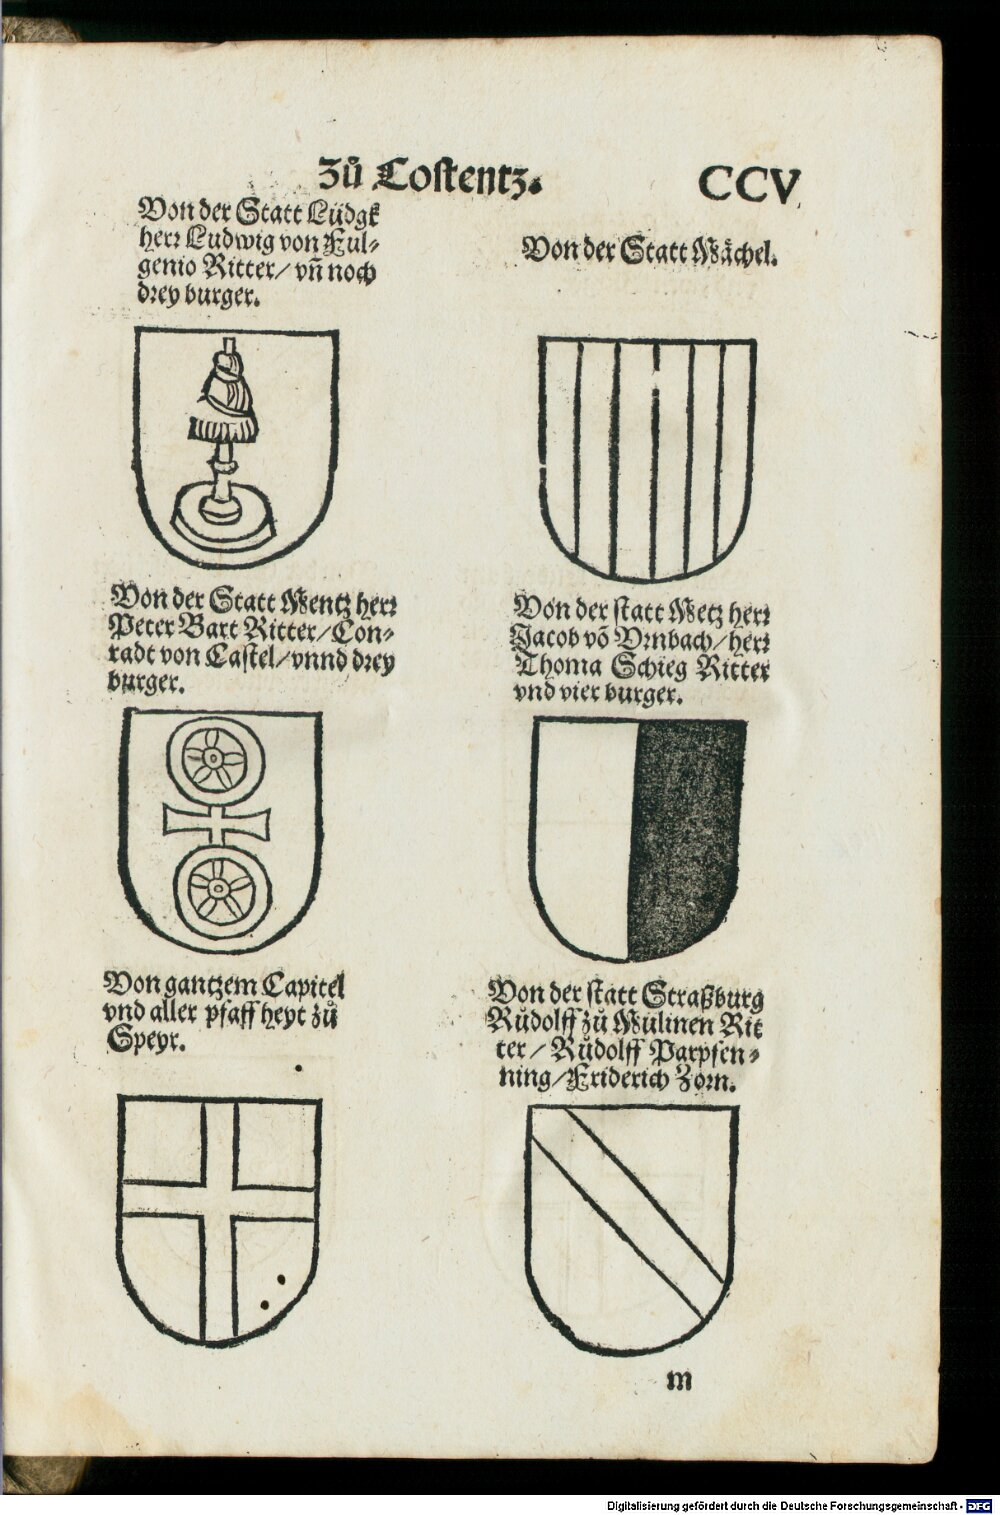 Zů Costentz.
CCV
Von der Statt Lüdgk
herr Ludwig von Ful-
genio Ritter/ vñ noch
drey burger.
Von der Statt Mächel.
Von der Statt Mentz herr
Peter Bart Ritter/ Con-
radt von Castel/ vnnd drey
burger.
Von der statt Metz herr
Jacob võ Vrnbach/ herr
Thoma Schieg Ritter
vnd vier burger.
Von gantzem Capitel
vnd aller pfaff heyt zů
Speyr.
Von der statt Straßburg
Růdolff zů Mülinen Rit
ter/ Růdolff Parpfen-
ning/ Friderich Zorn.
m
Digitalisierung gefördert durch die Deutsche Forschungsgemeinschaft - DFG